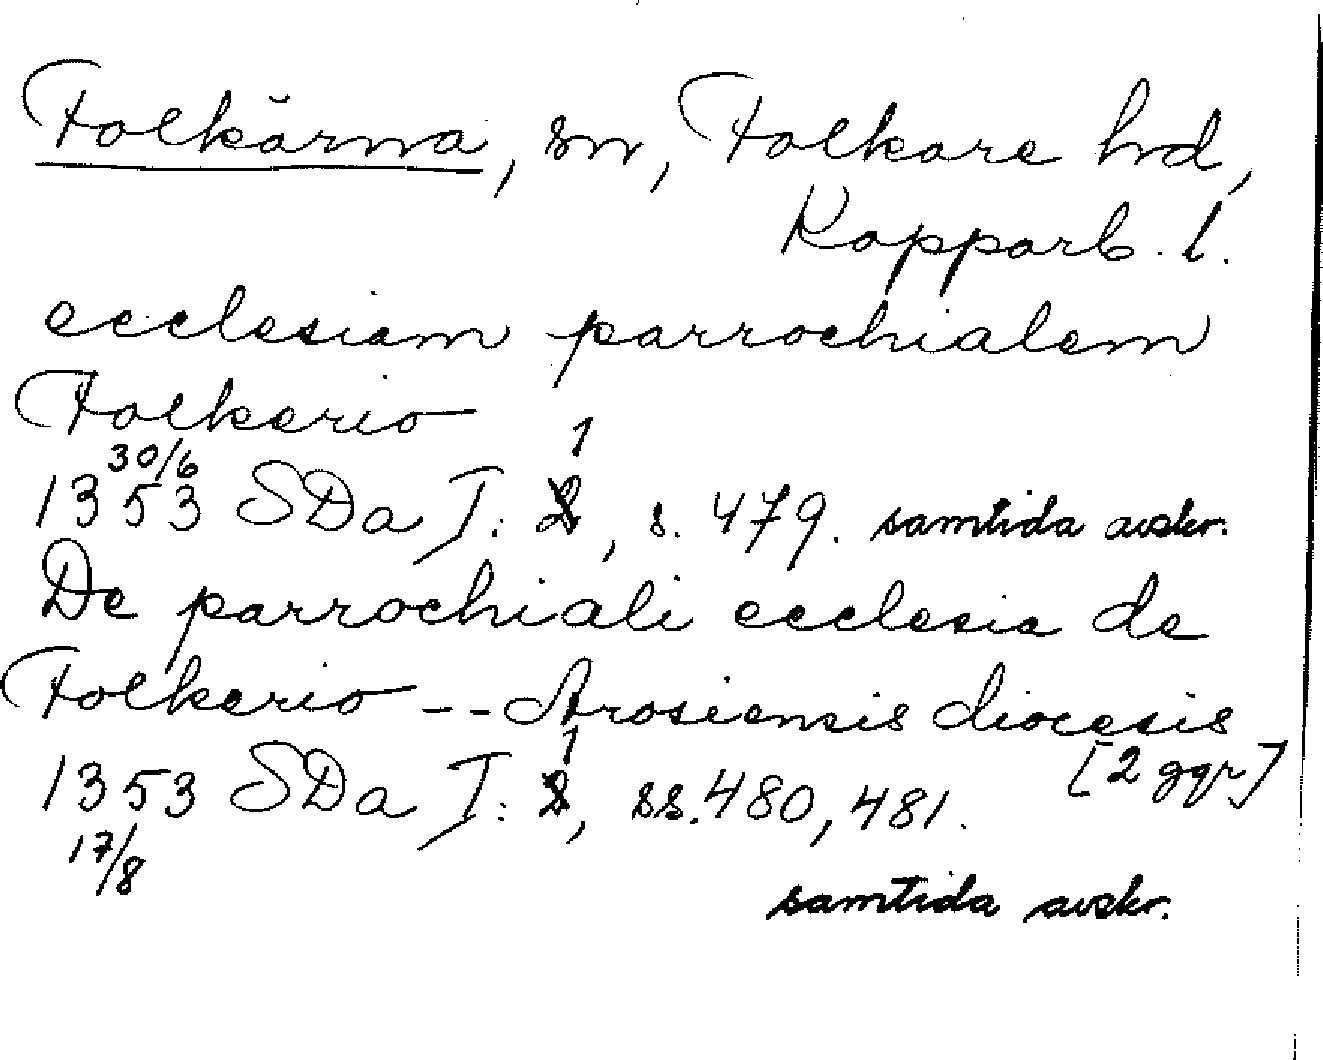 Folkärna, sn, Folkare hd,
Kopparb. l.
ecclesiam parrochialem
Folkerio
1353 30/6 SDa I: 1, s. 479. samtida avskr.
De parrochiali ecclesia de
Folkerio -- Arosiensis diocesis
[2 ggr]
1353 SDa I: 1, ss. 480, 481.
17/8
samtida avskr.